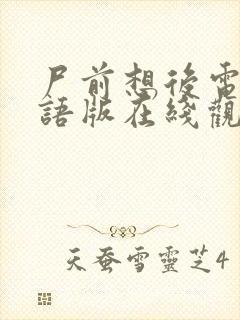 尸前想後電
語版在綫觀
天蚕雪靈芝4